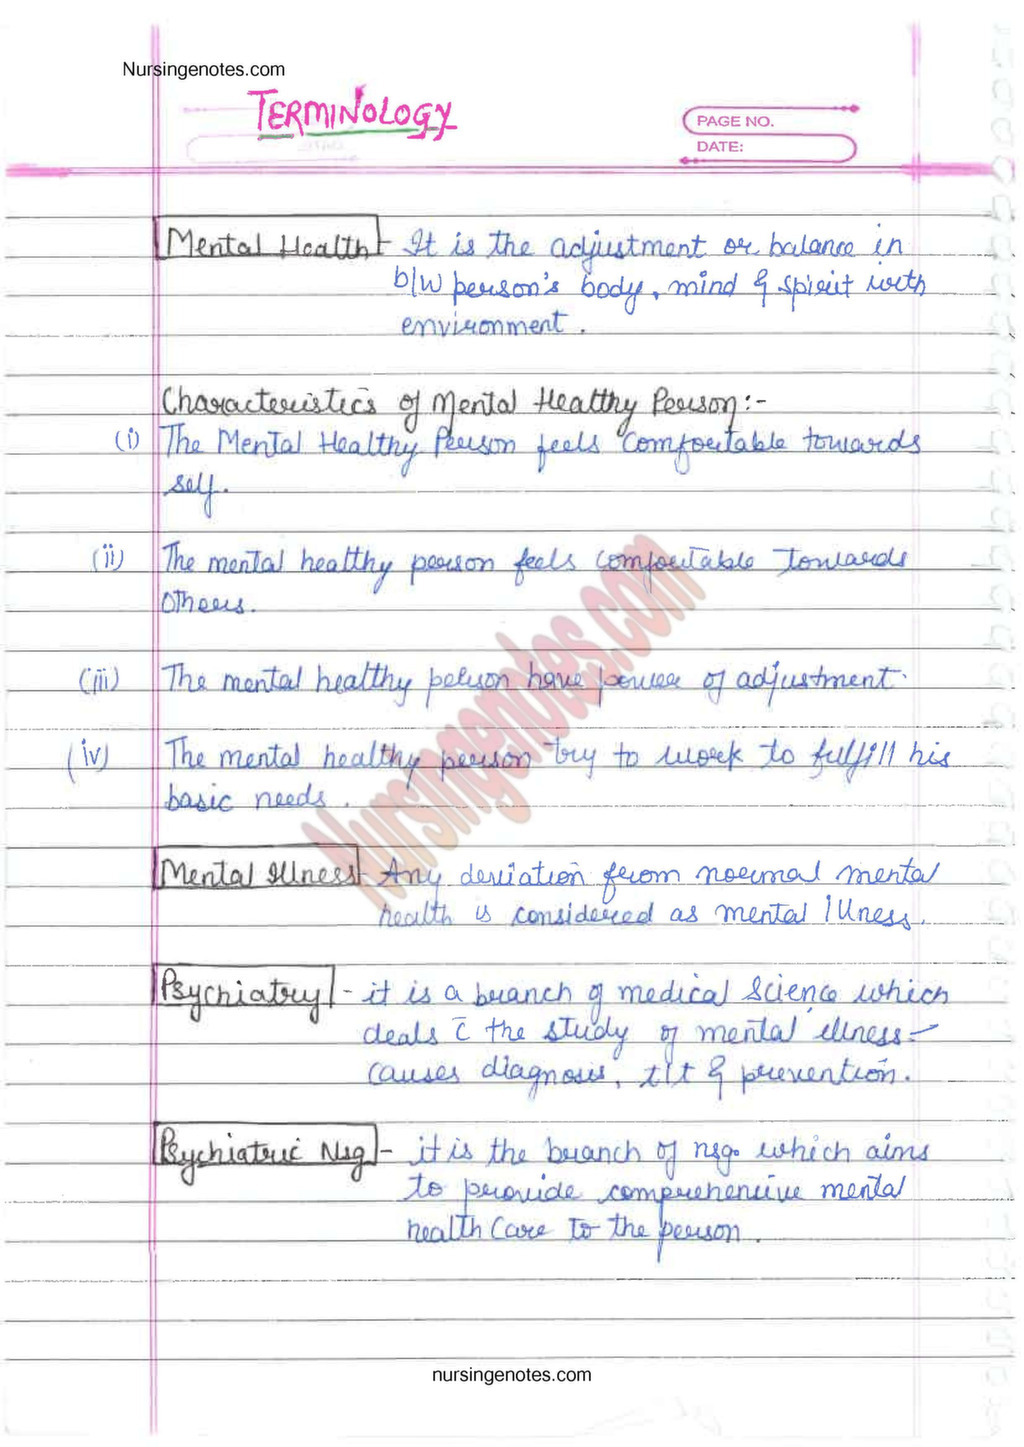 Nursingenotes.com
TERMINOLOGY
PAGE NO.
DATE:
Mental Health - It is the adjustment or balance in
b/w person's body, mind & spirit with
environment.
Characteristics of Mental Healthy Person:-
(i) The Mental Healthy Person feels comfortable towards
self.
(ii) The mental healthy person feels comfortable towards
others.
(iii) The mental healthy person have power of adjustment.
(iv) The mental healthy person try to work to fulfill his
basic needs.
Nursingenotes.com
Mental Illness - Any deviation from normal mental
health is considered as mental illness.
Psychiatry - it is a branch of medical science which
deals c̄ the study of mental illness-
causes diagnosis, t/t & prevention.
Psychiatric Nsg - it is the branch of nsg. which aims
to provide comprehensive mental
health care to the person.
nursingenotes.com